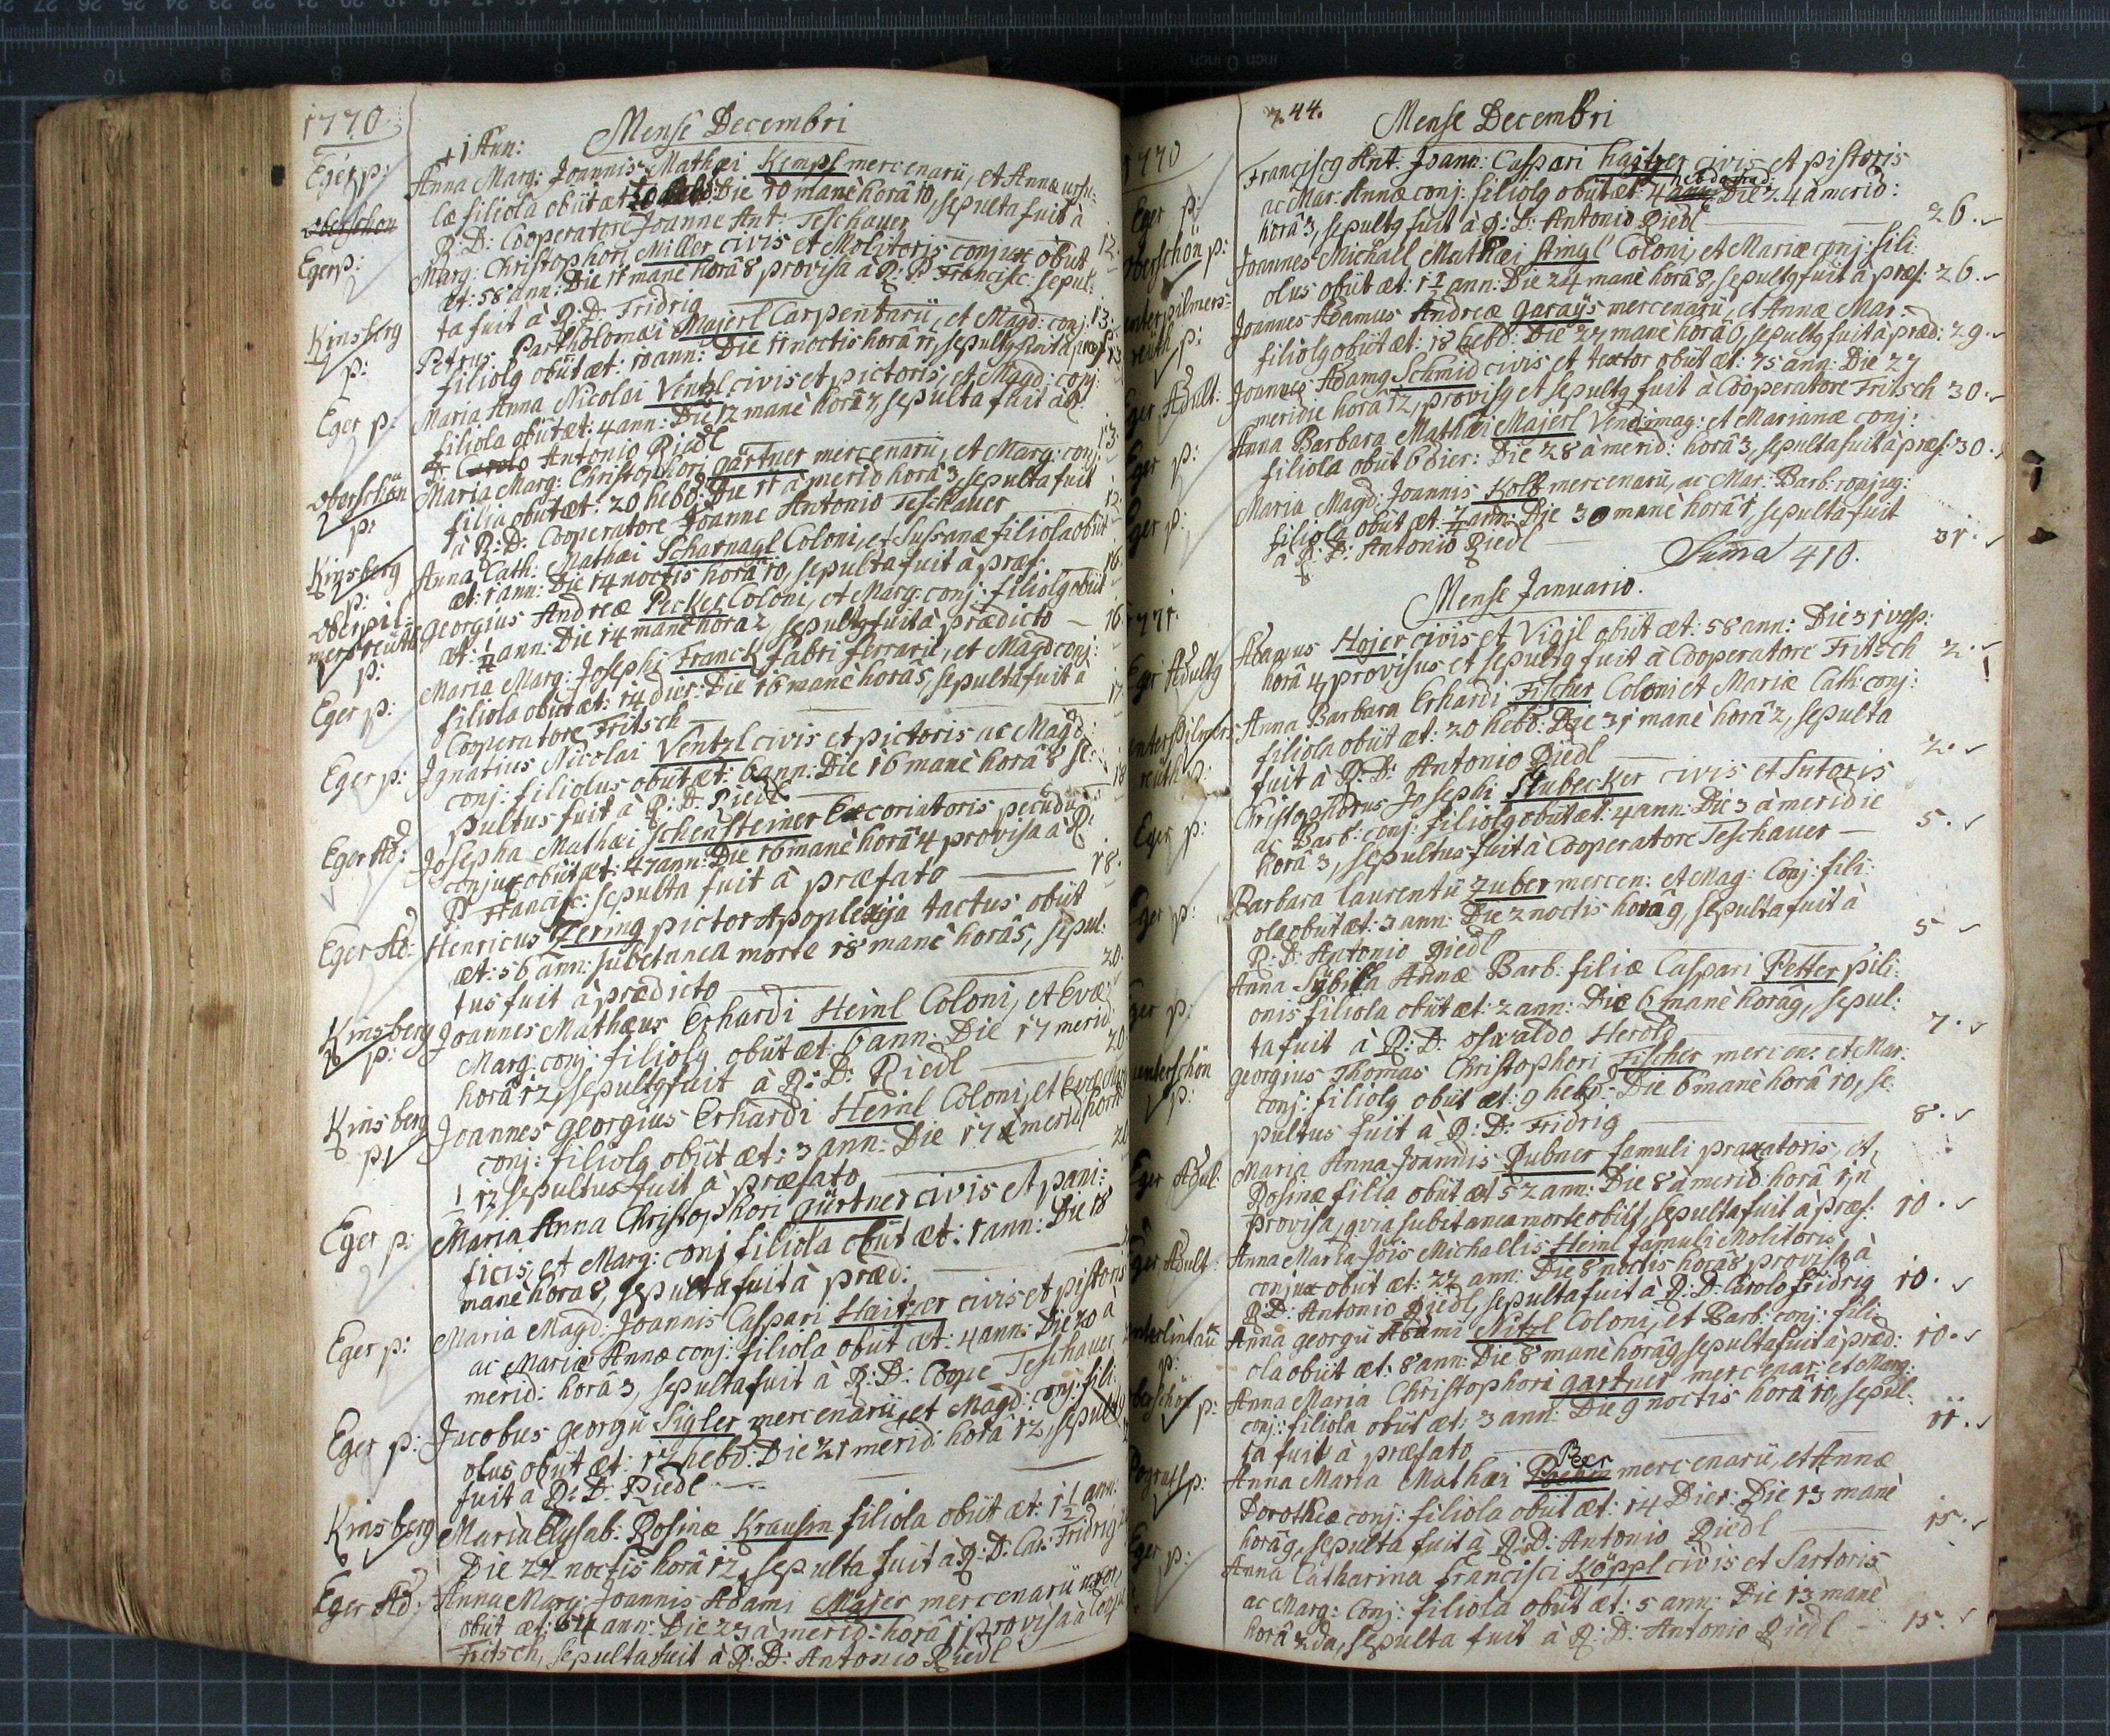 1770
Mense Decembri
+ 1 Ann:
Eger p: Anna Marg: Joannis Mathæi Kempl mercenarii, et Annæ ursu-
læ filiola obiit æt Die 10 manè horâ 10, sepulta fuit à
oberschon R: D: Cooperatore Joanne Ant: Teschauer 12.
Eger p: Marg: Christophori Miller civis et Molitoris conjux obiit
æt: 58 ann: Die 11 manè horâ 8 provisa à R: P. Francisc: sepul:
ta fuit à R: D: Fridrig 13.
Kinsberg p: Petrus Partholomæi Majerl Carpentarii, et Magd: conj:
filiolq obiit æt: 10 ann: Die 11 noctis horâ 11, sepultq fuit à præf 13
Eger p: Maria Anna Nicolai Ventzl civis et pictoris, et Magd: conj:
filiola obiit æt: 4 ann: Die 12 manè horâ 7, sepulta fuit à R:
D: Carolo Antonio Riedl 13.
oberschön p: Maria Marg: Christophori gartner mercenarii, et Marg: conj:
filia obiit æt: 20 hebd: Die 11 à merid horâ 3, sepulta fuit
à R: D: Cooperatore Joanne Antonio Teschauer 12.
Kinsberg p: Anna Cath: Mathæi Scharnagl Coloni, et Sussanæ filiola obiit
æt: 1 ann: Die 14 noctis horâ 10, sepulta fuit à præf. 16.
oberpil-
mersreuth p: georgius Andreæ Pecker Coloni, et Marg: conj: filiolq obiit
æt: 1/4 ann: Die 14 manè horâ 2, sepultq fuit à prædicto — 16.
Eger p: Maria Marg: Josephi Franck fabri ferrarii, et Magd conj:
filiola obiit æt: 14 dier: Die 16 manè horâ 5, sepulta fuit à
Cooperatore Fritsch 17.
Eger p: Ignatius Nicolai Ventzl civis et pictoris ac Magd:
conj: filiolus obiit æt: 6 ann: Die 16 manè horâ 8 se:
pultus fuit à R: D: Riedl 18
Eger Ad: Josepha Mathæi Schensteiner Excoriatoris pecudu
conjux obiit æt: 47 ann: Die 16 manè horâ 4 provisa à R:
P Francisc: sepulta fuit à præfato 18.
Eger Ad: Henricus Zering pictor Apoplexija tactus obiit
æt: 56 ann: subetanea morte 18 manè horâ 5, sepul:
tus fuit à prædicto 20.
Kinsberg p: Joannes Mathæus Erhardi Heinl Coloni, et Evæ
Marg: conj: filiolq obiit æt: 6 ann: Die 17 merid
horâ 12, sepultq fuit à R: D: Riedl 20
Kinsberg p: Joannes georgius Erhardi Heinl Coloni, et Evæ Mar
conj: filiolq obiit æt: 3 ann: Die 17 à merid horâ
1/2 12 sepultus fuit à præfato
Eger p: Maria Anna Christophori gürtner civis et pani:
ficis, et Marg: conj filiola obiit æt: 1 ann: Die 18
manè hora 8, sepulta fuit à præd:
Eger p: Maria Magd: Joannis Caspari Haitzer civis et pistoris
ac Mariæ Annæ conj: filiola obiit æt: 4 ann: Die 20 à
merid: horâ 3, sepulta fuit à R: D: Coope Teschauer
Eger p: Jacobus georgii Sigler mercenarii, et Magd: conj: fili:
olus obiit æt: 12 hebd: Die 21 merid: horâ 12, sepultq
fuit à R: D: Riedl
Kinsberg Maria Elysab: Rosinæ Krausin filiola obiit æt: 1 1/2 ann:
Die 22 noctis horâ 12, sepulta fuit à R: D: Car: Fridrig
Eger Ad Anna Marg: Joannis Adami Majer mercenarii uxor
obiit æt: 64 ann: Die 23 à merid: horâ 1 provisa à Coope
Fritsch, sepulta fuit à R: D: Antonio Riedl
244.
Mense Decembri
1770
Eger p: Franciscq Ant: Joann: Caspari haitzer civis et pistoris
ac Mar: Annæ conj: filiolq obiit æt: 4 Die 24 à merid:
horâ 3, sepultq fuit à R: D: Antonio Riedl 26.
oberschön p: Joannes Michall Mathæi Amgl Coloni, et Mariæ conj: fili:
olus obiit æt: 1 1/2 ann: Die 24 manè horâ 8, sepultq fuit à præf: 26.
unterpilmers-
reuth p: Joannes Adamus Andreæ garaijs mercenarii, et Annæ Mar:
filiolq obiit æt: 18 hebd: Die 27 manè horâ 6, sepultq fuit à præd: 29.
Eger Adult: Joannes Adamq Schmid civis et textor obiit æt: 75 ann: Die 27
meridie horâ 12, provisq et sepultq fuit à Cooperatore Fritsch 30.
Eger p: Anna Barbara Mathæi Majerl Vendimag: et Marianæ conj:
filiola obiit 6 dier: Die 28 à merid: horâ 3, sepulta fuit à præf: 30.
Eger p: Maria Magd: Joannis Kolb mercenarii, ac Mar: Barb: conjug:
filiola obiit æt: 1/2 ann: Die 30 manè horâ 1, sepulta fuit
à R: D: Antonio Riedl 31.
Suma 410.
Mense Januario.
1771.
Eger Adultq Adamus Hojer civis et Vigil obiit æt: 58 ann: Die 31 vesp:
horâ 4 provisus et sepultq fuit à Cooperatore Fritsch 2.
unterpilmers
reuth p: Anna Barbara Erhardi Fischer Coloni et Mariæ Cath: conj:
filiola obiit æt: 20 hebd: Die 31 manè horâ 2, sepulta
fuit à R: D: Antonio Riedl 2.
Eger p: Christophorus Josephi Stubecker civis et Sutoris
ac Barb: conj: filiolq obiit æt: 4 ann: Die 3 à meridie
horâ 3, sepultus fuit à Cooperatore Teschauer — 5.
Eger p: Barbara laurentii Zuber mercen: et Mag: Conj: fili:
ola obiit æt: 3 ann: Die 2 noctis horâ 9, sepulta fuit à
R: D: Antonio Riedl 5
Eger p: Anna Sybilla Annæ Barb: filiæ Caspari Petter pili:
onis filiola obiit æt: 2 ann: Die 6 manè horâ 9, sepul:
ta fuit à R: D: oswaldo Herold 7.
unterschön p: georgius Thomas Christophori Fischer mercen: et Mar:
conj: filiolq obiit æt: 9 hebd: Die 6 manè horâ 10, se:
pultus fuit à R: D: Fridrig 8.
Eger Adul: Maria Anna Joannis Rubner famuli praxatoris, et
Rosinæ filia obiit æt 52 ann: Die 8 à merid: horâ 1, n
provisa, qvia subitanea morte obiit, sepulta fuit à præf: 10.
Eger Adult: Anna Maria Jois Michallis Heinl famuli Molitoris
conjux obiit æt: 22 ann: Die 8 noctis horâ 8 provisa à
R: D: Antonio Riedl, sepulta fuit à R: D: Carolo Fridrig 10.
unterlintaü p: Anna georgii Adami Nitzl Coloni, et Barb: conj: fili:
ola obiit æt: 8 ann: Die 8 manè horâ 9, sepulta fuit à præd: 10.
oberschön p: Anna Maria Christophori gartner mercenar: et Marg:
conj: filiola obiit æt: 3 ann: Die 9 noctis horâ 10, sepul:
ta fuit à præfato 11.
Pograth p: Anna Maria Mathæi Beer mercenarii, et Annæ
Dorotheæ conj: filiola obiit æt: 14 Dier: Die 13 manè
horâ 9, sepulta fuit à R: D: Antonio Riedl 15.
Eger p: Anna Catharina Francisci Köppl civis et Sartoris
ac Marg: Conj: filiola obiit æt: 5 ann: Die 13 manè
horâ 2da, sepulta fuit à R: D: Antonio Riedl — 15.